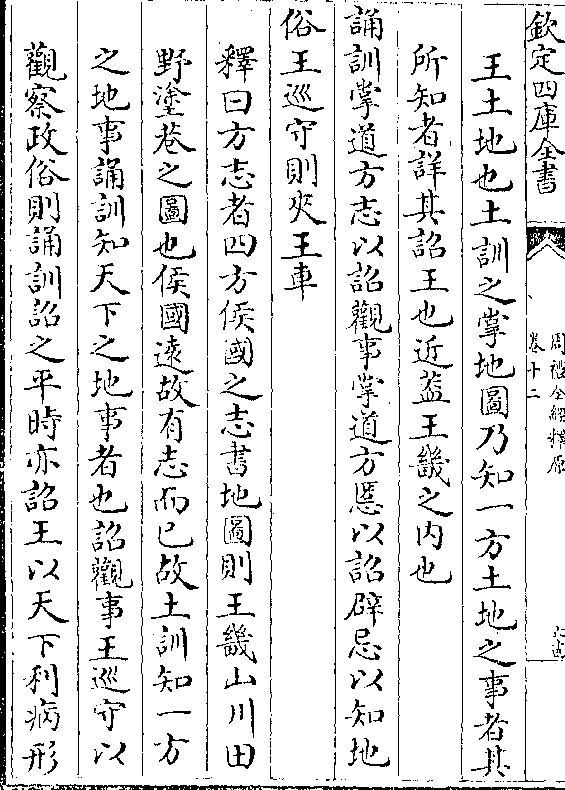 欽定四庫全書
周禮全經釋原
卷十二
王土地也土訓之掌地圖乃知一方土地之事者其
所知者詳其詔王也近葢王畿之内也
誦訓掌道方志以詔觀事掌道方慝以詔辟忌以知地
俗王巡守則夾王車
釋曰方志者四方侯國之志書地圖則王畿山川田
野塗巷之圖也侯國遠故有志而已故土訓知一方
之地事誦訓知天下之地事者也詔觀事王巡守以
觀察政俗則誦訓詔之平時亦詔王以天下利病形